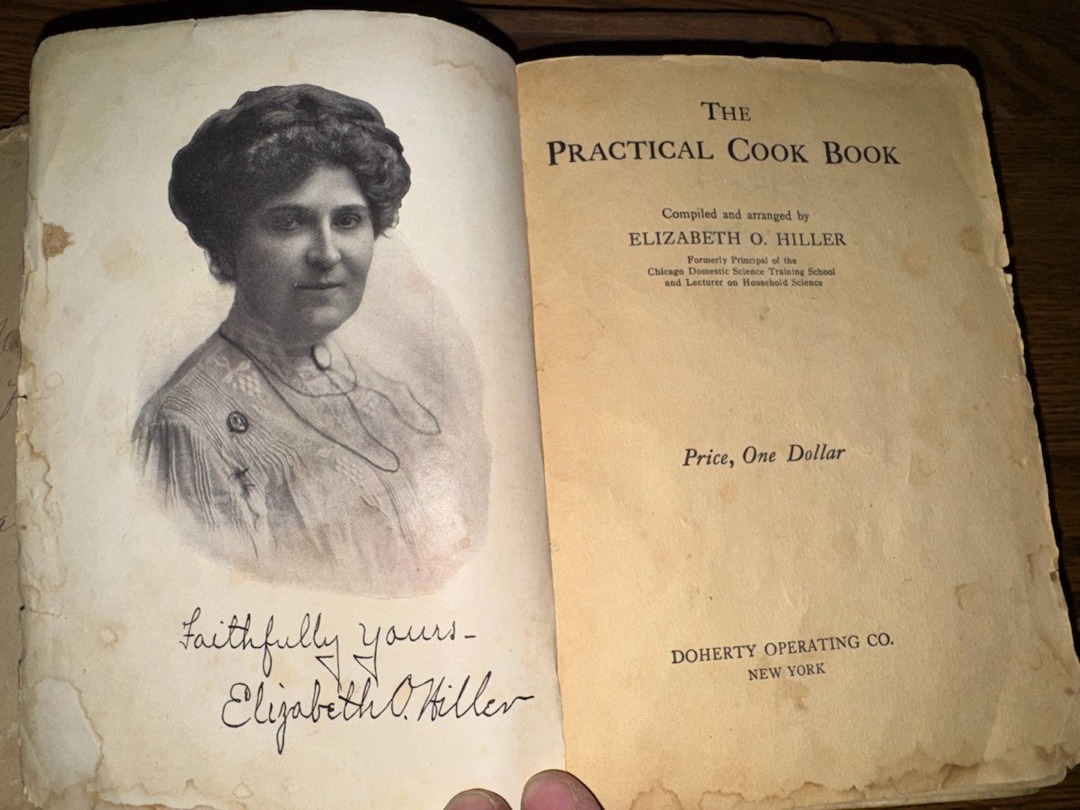 Faithfully yours-
Elizabeth O. Hiller
THE
PRACTICAL COOK BOOK
Compiled and arranged by
ELIZABETH O. HILLER
Formerly Principal of the
Chicago Domestic Science Training School
and Lecturer on Household Science
Price, One Dollar
DOHERTY OPERATING CO.
NEW YORK